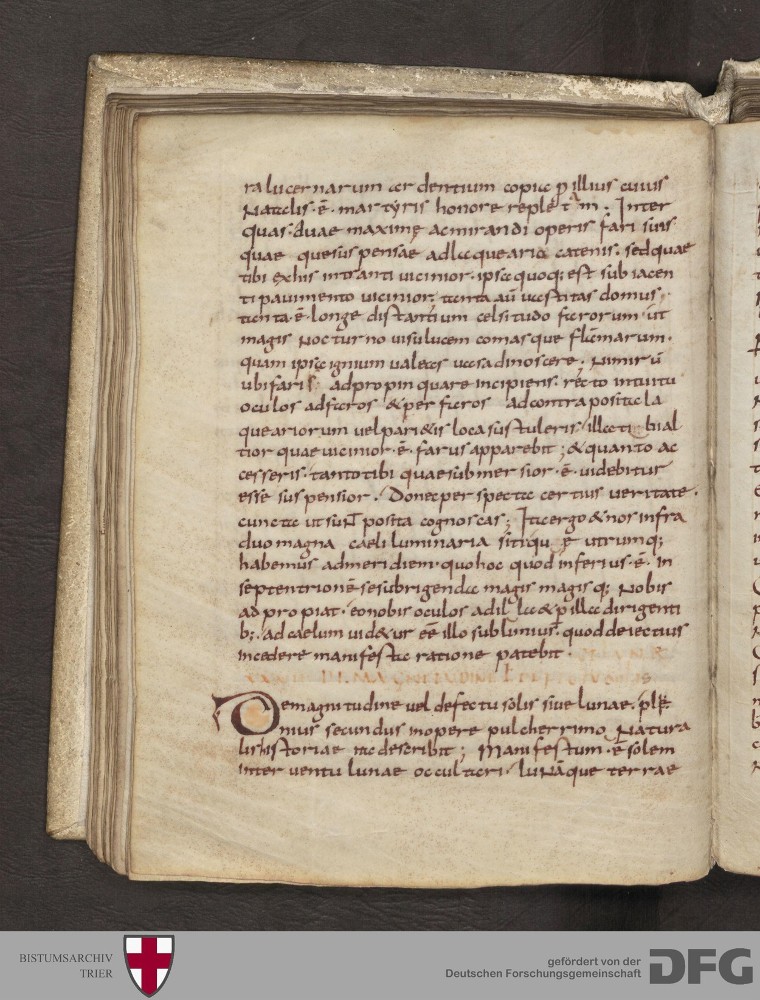 ra lucernarum ardentium copia p illius cuius
Natalis · ē · martyris honore replet
quas · duae maximę ac mirandi operis fari suis
quae que suspensae ad laquearia catenis · sed quae
tibi ex his intranti uicinior · ipsa quoq; est subiacen
ti pauimento uicinior; tanta aū uastitas domus ·
tanta · ē · longe distantium celsitudo farorum · ut
magis Nocturno uisu lucem comasque flāmarum ·
quam ipsa ignium ualeas uasa dinoscere · Nimirū
ubi fari adpropinquare incipiens · recto intuitu
oculos ad faros & per faros ad contra posita la
quearia uel parietis loca sustuleris · illa tibi al
tior quae uicinior · ē · farus apparebit ; & quanto ac
cesseris · tanto tibi quae submersior · ē · uidebitur
esse suspensior · Donec perspecta certius ueritate ·
cuncta ut posita cognoscas ; Ita ergo & nos infra
duo magna caeli luminaria siti utrumq;
habemus ad meridiem · quo hoc quod inferius · ē · in
septentrionē se subrigendo magis magisq; Nobis
adpropiat · eo nobis oculos ad illa & p illa dirigenti
b; · ad caelum uid&ur eē illo sublimius · quod deiectius
incedere manifesta ratione patebit ·
De magnitudine uel defectu solis siue lunae · pl
inius secundus in opere pulcherrimo Natura
lis historiae ita describit ; Manifestum · ē solem
interuentu lunae occultari · luNāque terrae
BISTUMSARCHIV
TRIER
gefördert von der
Deutschen Forschungsgemeinschaft
DFG